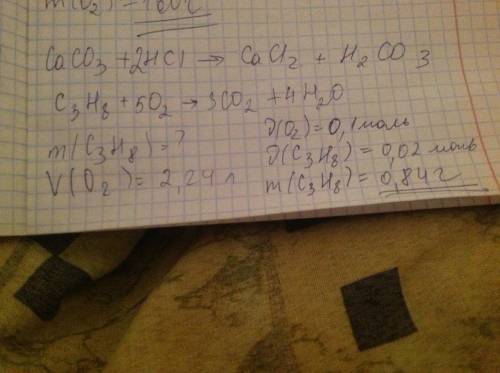 m(O₂) = 160 г
CaCO₃ + 2HCl → CaCl₂ + H₂CO₃
C₃H₈ + 5O₂ → 3CO₂ + 4H₂O
m(C₃H₈) = ? ν(O₂) = 0,1 моль
V(O₂) = 2,24 л ν(C₃H₈) = 0,02 моль
m(C₃H₈) = 0,84 г